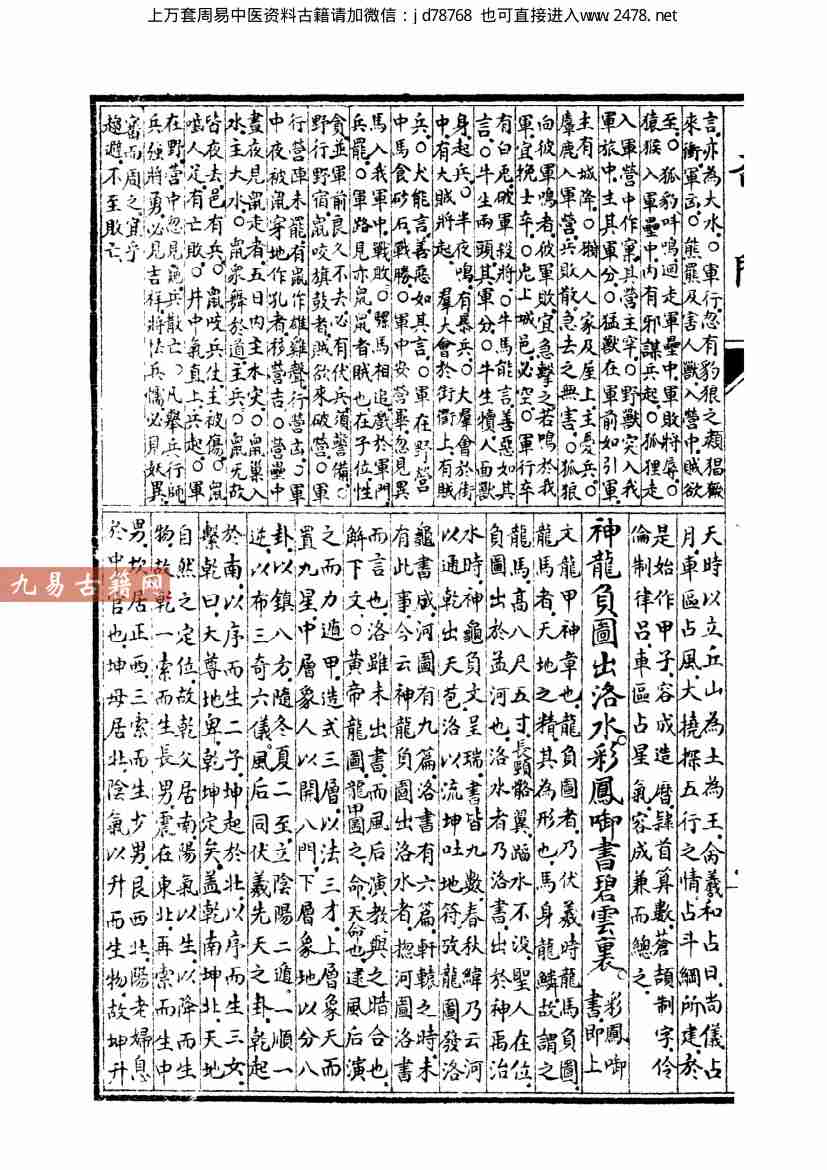 上万套周易中医资料古籍请加微信：jd78768 也可直接进入www.2478.net
言亦為大水○軍行忽有豹狼之類猖獗
來衝軍凶○熊羆及害人獸入營中賊欲
至○狐豹呌鳴過走軍壘中軍敗將辱○
猿猴入軍壘中內有邪謀兵起○狐狸走
入軍營中作窠其營主空○野獸突入我
軍旅中主其軍分○猛獸在軍前如引軍
主有城降○獺入人家及屋上主憂兵○
麞鹿入軍營兵敗散急去之無害○狐狼
向彼軍鳴者彼軍敗宜急擊之若鳴於我
軍宜挽士卒○兔上城邑必空○軍行卒
有白兎破軍殺將○牛馬能言善惡如其
言○牛生兩頭其軍分○牛生犢人面獸
身起兵○半夜鳴有暴兵○大羣會於街
中有大賊將起羣大會於街衢上有賊
兵○犬能言善惡如其言○軍在野營
中馬食砂石戰勝○軍中安營畢忽見異
馬入我軍中戰敗○騾馬相追戲於軍門
兵罷○軍路見亦鼠者賊也在子位性
貪並軍前良久不去必有伏兵須警備○
野行野宿鼠咬旗鼓者賊欲來破營○軍
行營陣未罷有鼠作雄雞聲行營凶○軍
中夜被鼠穿地作孔者移營吉○營壘中
晝夜見鼠走者五日內主水灾○鼠巢入
水主大水○鼠衆舞於道主兵○鼠无故
皆夜去邑有兵○鼠咬兵生主被傷○鼠
噬人定有亡敗○井中氣直上兵起○軍
在野營中忽見兵散亡○凡舉兵行師
兵强將勇必見吉祥將怯兵懦必見妖異
審而周之宜乎
趨避不至敗亡
天時以立丘山為土為王命羲和占日尚儀占
月車區占風大撓探五行之情占斗綱所建於
是始作甲子容成造曆隸首算數蒼頡制字伶
倫制律呂車區占星氣容成兼而總之
神龍負圖出洛水彩鳳啣書碧雲裏彩鳳啣書即上
文龍甲神章也龍負圖者乃伏羲時龍馬負圖
龍馬者天地之精其為形也馬身龍鱗故謂之
龍馬高八尺五寸長頸骼翼蹈水不沒聖人在位
負圖出於孟河也洛水者乃洛書出於神禹治
水時神龜負文呈瑞書皆九數春秋緯乃云河
以通乾出天苞洛以流坤吐地符攷龍圖發洛
龜書咸河圖有九篇洛書有六篇軒轅之時未
有此事今云神龍負圖出洛水者揔河圖洛書
而言也洛雖未出書而風后演教與之暗合也
解下文○黃帝龍圖龍甲圖之命天命也逮風后演
之而力遁甲造式三層以法三才上層象天而
置九星中層象人以開八門下層象地以分八
卦以鎮八方隨冬夏二至立陰陽二遁一順一
逆以布三奇六儀風后同伏羲先天之卦乾起
於南以序而生二子坤起於北以序而生三女
繫乾曰天尊地卑乾坤定矣蓋乾南坤北天地
自然之定位故乾父居南陽氣以生以降而生
物故乾一索而生長男震在東北再索而生中
男坎居正西三索而生少男艮西北陽老婦息
於中宮也坤母居北陰氣以升而生物故坤升
九易古籍网